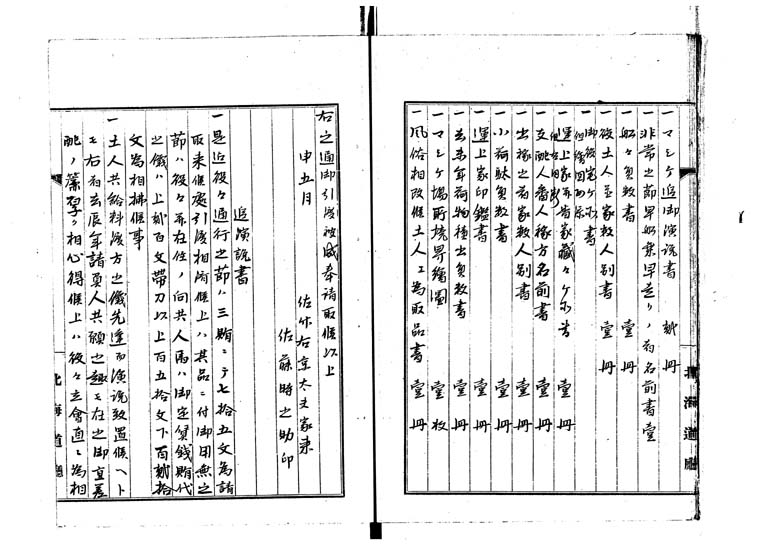 一マシケ追御演説書 弐冊
一非常之節早船乗早走り、為名前書 壹
一船々負数書 壹冊
一役土人並家数人別書 壹冊
一運上家 蔵々ケ所書 壹冊
一支配人番人稼方名前書 壹冊
一出稼之者家数人別書 壹冊
一小荷駄負数書 壹冊
一運上家印鑑書 壹冊
一去未年荷物種出負数書 壹冊
一マシケ場所境界繪圖 壹枚
一風俗相改候土人江為取品書 壹冊
右之通御引渡被成奉請取候以上
申五月 佐竹右京太夫家来
佐藤時之助印
追演説書
一是迄役々通行之節、三賄ニテ七拾五文為請
取来候處引渡相済候上ハ其品ニ付御用無之
節ハ役々并在住、向共人馬ハ御定賃銭賄代
之儀ハ上弐百文帯刀以上百五拾文下百弐拾
文為相拂候事
一土人共給料渡方之儀先達而演説致置候ヘト
モ右為去辰年請負人共願之趣モ在之御直差
配ノ 相心得候上ハ役々立會直ニ為相
北海道廳
北海道廳